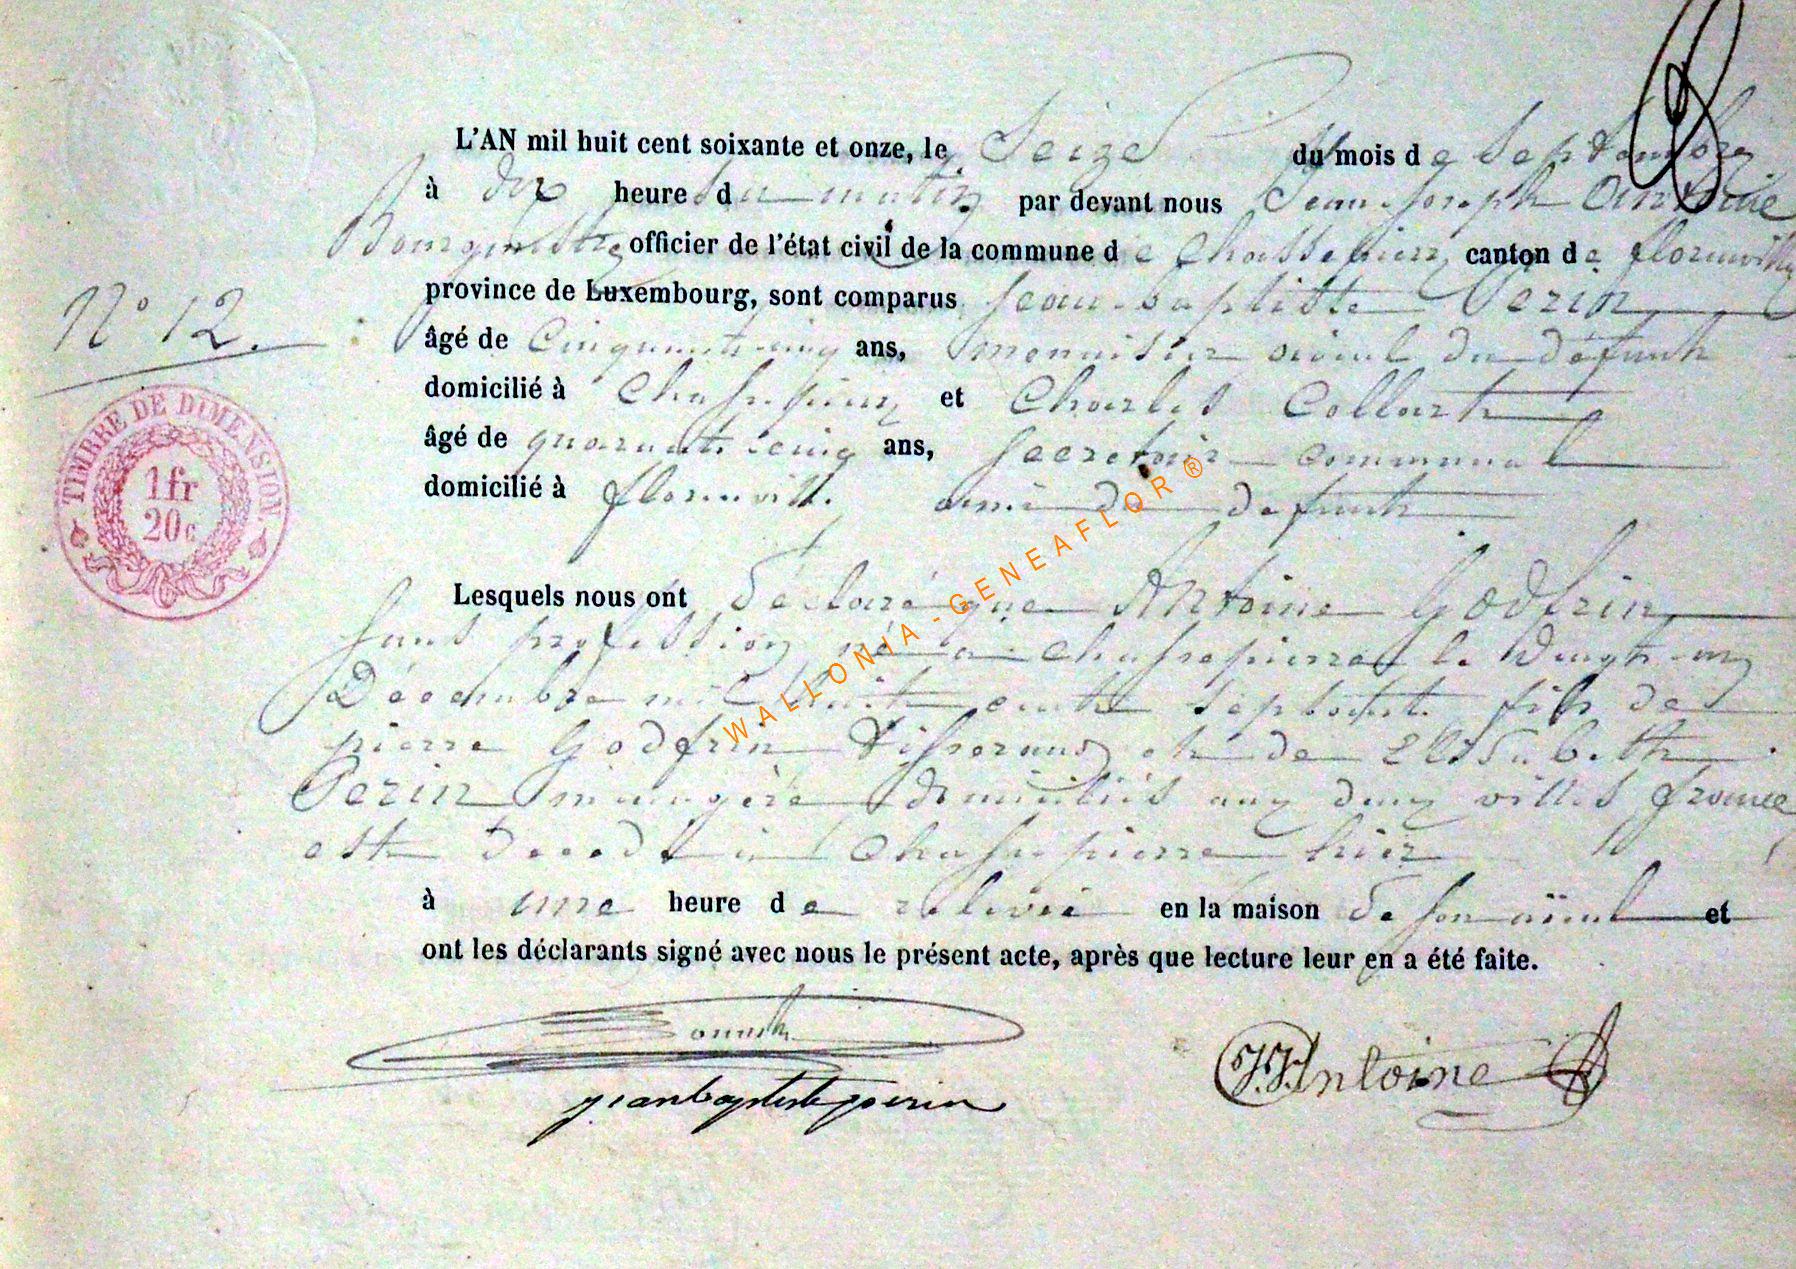 L'AN mil huit cent soixante et onze, le Seize du mois de Septembre
à dix heure du matin par devant nous Jean Joseph Antoine
Bourgmestre officier de l'état civil de la commune de Chassepierre canton de florenville
province de Luxembourg, sont comparus Jean-baptiste Perin
N° 12.
âgé de Cinquante cinq ans, menuisier aieul du défunt
domicilié à Chassepierre et Charles Collart
âgé de quarante cinq ans, secretaire communal
domicilié à florenville ami du defunt
TIMBRE DE DIMENSION.
1fr
20c
Lesquels nous ont déclaré que Antoine Godfrin
sans profession né a chassepierre le Vingt un
Décembre mil huit cent septante fils de
pierre Godfrin tisserand et de Elisabeth
Perin menagère domiciliés aux deux villes france
est decedé à Chassepierre hier
à une heure de relevée en la maison de son aïeul et
ont les déclarants signé avec nous le présent acte, après que lecture leur en a été faite.
jeanbaptiste perin
J.J.Antoine
WALLONIA-GENEAFLOR®